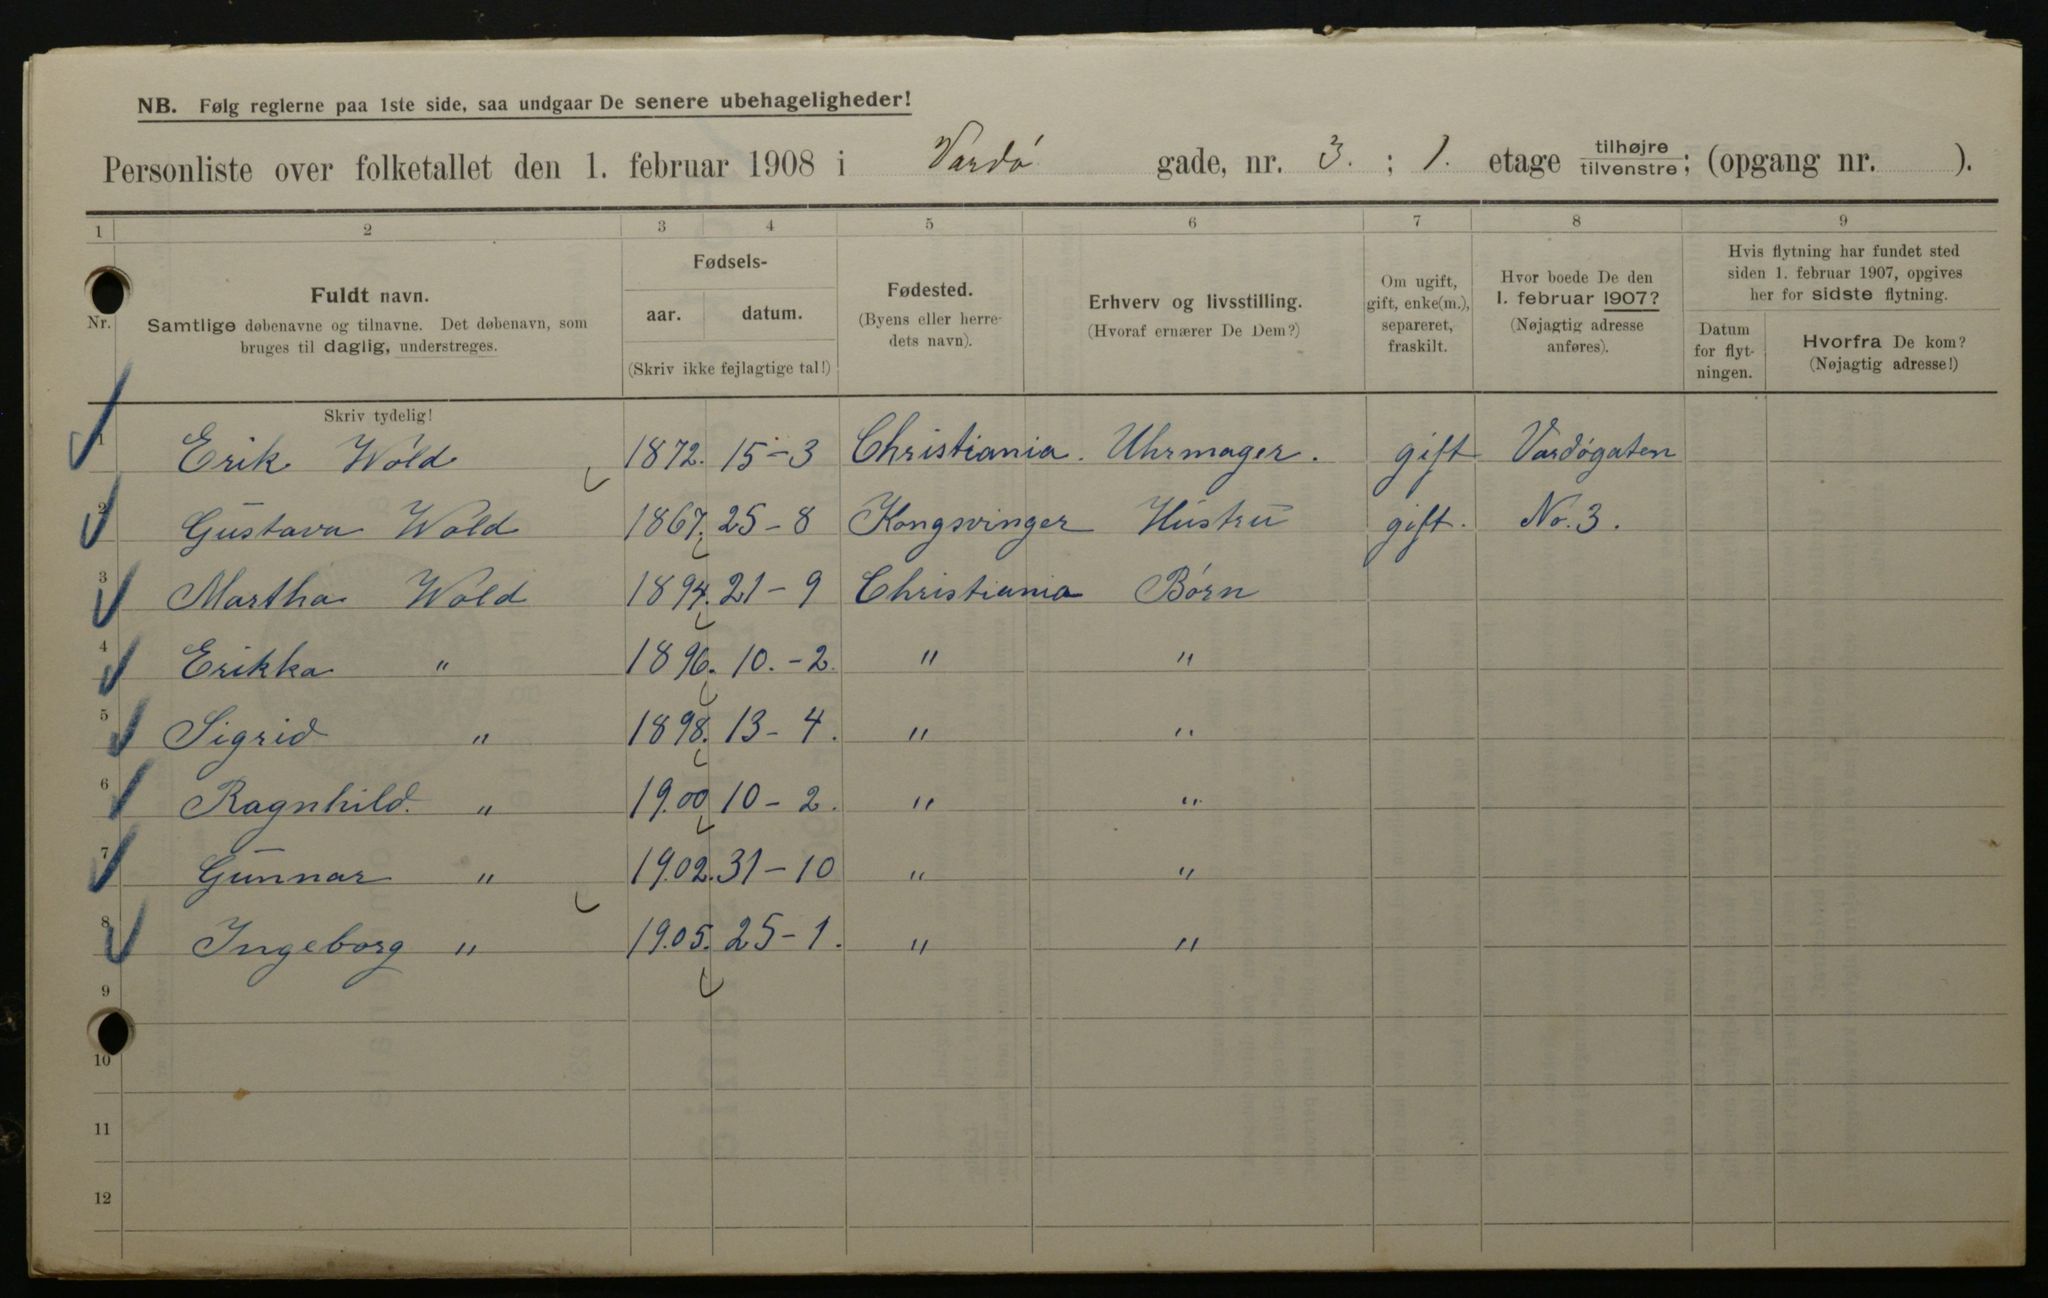 NB. Følg reglerne paa 1ste side, saa undgaar De senere ubehageligheder!
Personliste over folketallet den 1. februar 1908 i Vardø gade, nr. 3. ; 1. etage tilhøjre tilvenstre; (opgang nr. ).
1 2 3 4 5 6 7 8 9
Nr.
Fuldt navn.
Samtlige døbenavne og tilnavne. Det døbenavn, som
bruges til daglig, understreges.
Fødsels-
aar. datum.
(Skriv ikke fejlagtige tal!)
Fødested.
(Byens eller herre-
dets navn).
Erhverv og livsstilling.
(Hvoraf ernærer De Dem?)
Om ugift,
gift, enke(m.),
separeret,
fraskilt.
Hvor boede De den
1. februar 1907?
(Nøjagtig adresse
anføres).
Hvis flytning har fundet sted
siden 1. februar 1907, opgives
her for sidste flytning.
Datum
for flyt-
ningen.
Hvorfra De kom?
(Nøjagtig adresse!)
Skriv tydelig!
1 Erik Wold 1872. 15-3 Christiania. Uhrmager. gift Vardøgaten
2 Gustava Wold 1867. 25-8 Kongsvinger Hustru gift. No. 3.
3 Martha Wold 1894. 21-9 Christiania Børn
4 Erikka " 1896. 10.-2. " "
5 Sigrid " 1898. 13-4. " "
6 Ragnhild. " 19.00 10-2. " "
7 Gunnar " 19.02. 31-10 " "
8 Ingeborg " 19.05. 25-1. " "
9
10
11
12